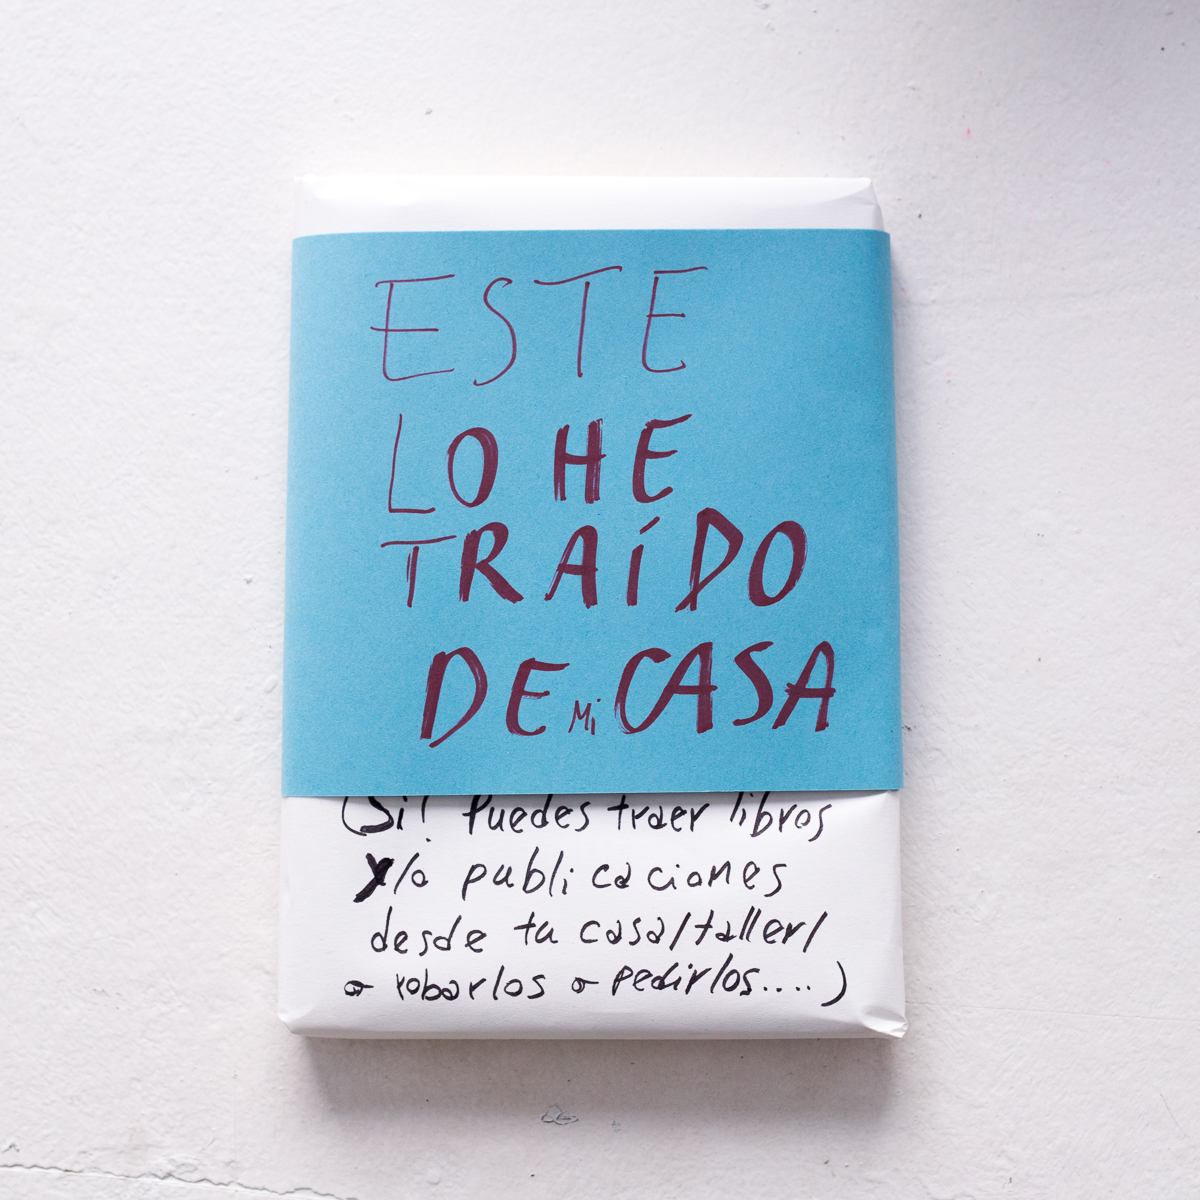 ESTE
LO HE
TRAÍDO
DE Mi CASA
(Si! Puedes traer libros
y/o publicaciones
desde tu casa/taller/
o robarlos o pedirlos....)